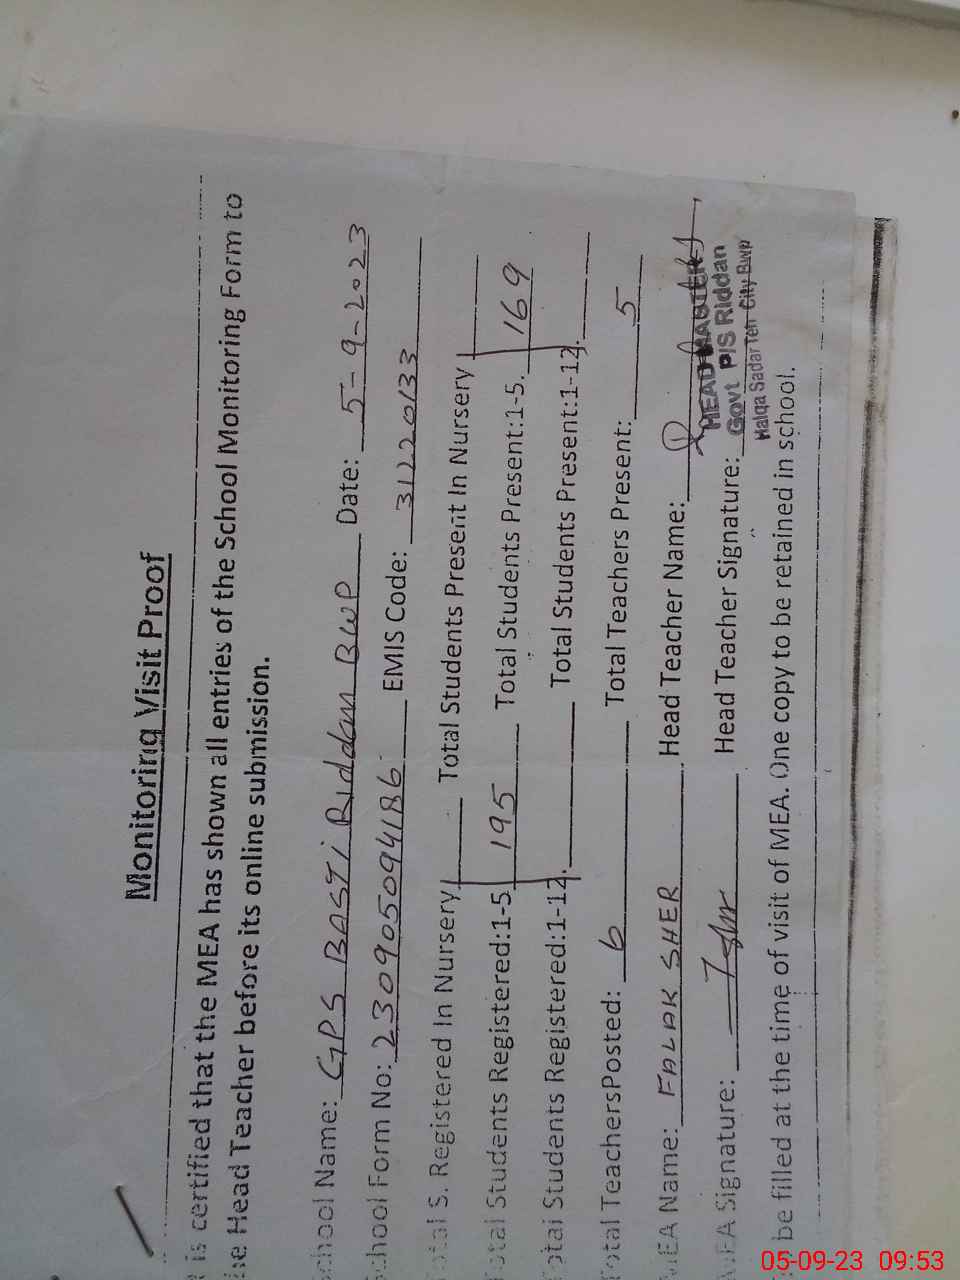 Monitoring Visit Proof
is certified that the MEA has shown all entries of the School Monitoring Form to
he Head Teacher before its online submission.
chool Name: GPS BASTI Riddan BWP Date: 5-9-2023
chool Form No: 230905094186 EMIS Code: 31220133
otal S. Registered In Nursery Total Students Present In Nursery
otal Students Registered:1-5 195 Total Students Present:1-5. 169
otal Students Registered:1-12. Total Students Present:1-12.
otal Teachers Posted: 6 Total Teachers Present: 5
MEA Name: FALAK SHER Head Teacher Name:
HEAD MASTER
MEA Signature: Head Teacher Signature:
Govt P/S Riddan
Halqa Sadar Teh City Bwp
be filled at the time of visit of MEA. One copy to be retained in school.
05-09-23 09:53